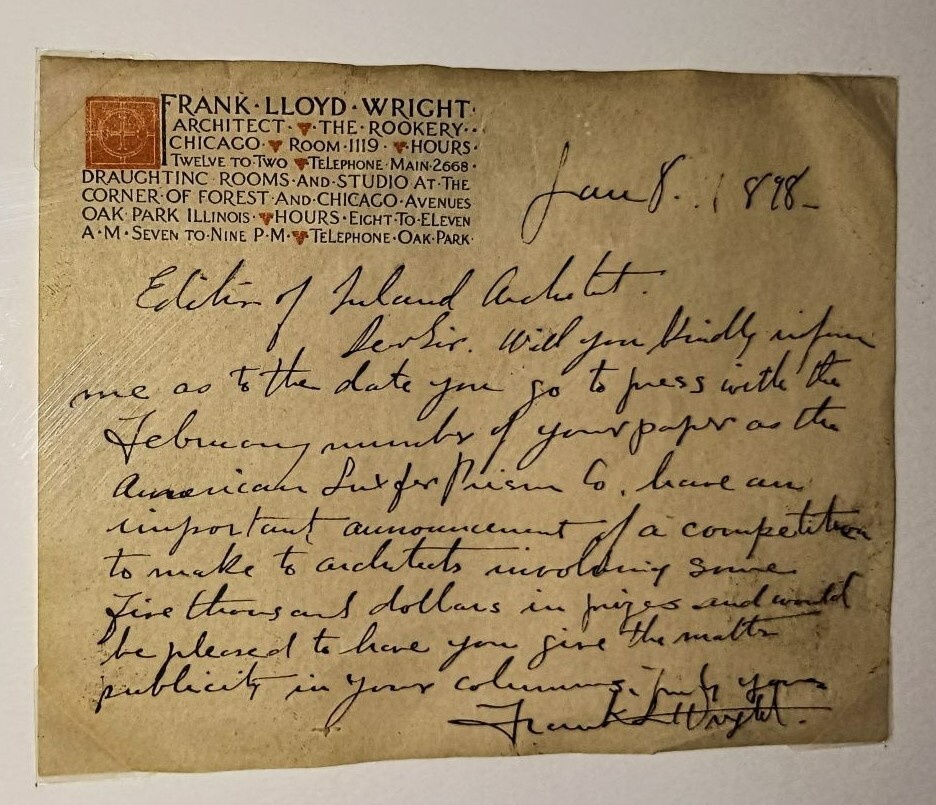 FRANK·LLOYD·WRIGHT·
ARCHITECT·THE·ROOKERY··
CHICAGO·ROOM·1119·HOURS·
TWELVE TO·TWO TELEPHONE·MAIN·2668·
DRAUGHTING ROOMS·AND·STUDIO AT·THE
CORNER·OF FOREST·AND·CHICAGO·AVENUES
OAK PARK ILLINOIS·HOURS·EIGHT·TO·ELEVEN
A·M·SEVEN TO·NINE P·M·TELEPHONE·OAK·PARK·
Jan 8. 1898-
Editor of Inland Architect.
Dear Sir. Will you kindly inform
me as to the date you go to press with the
February number of your paper as the
American Luxfer Prism Co. have an
important announcement of a competition
to make to architects involving some
five thousand dollars in prizes and would
be pleased to have you give the matter
publicity in your columns. Truly yours
Frank L Wright.